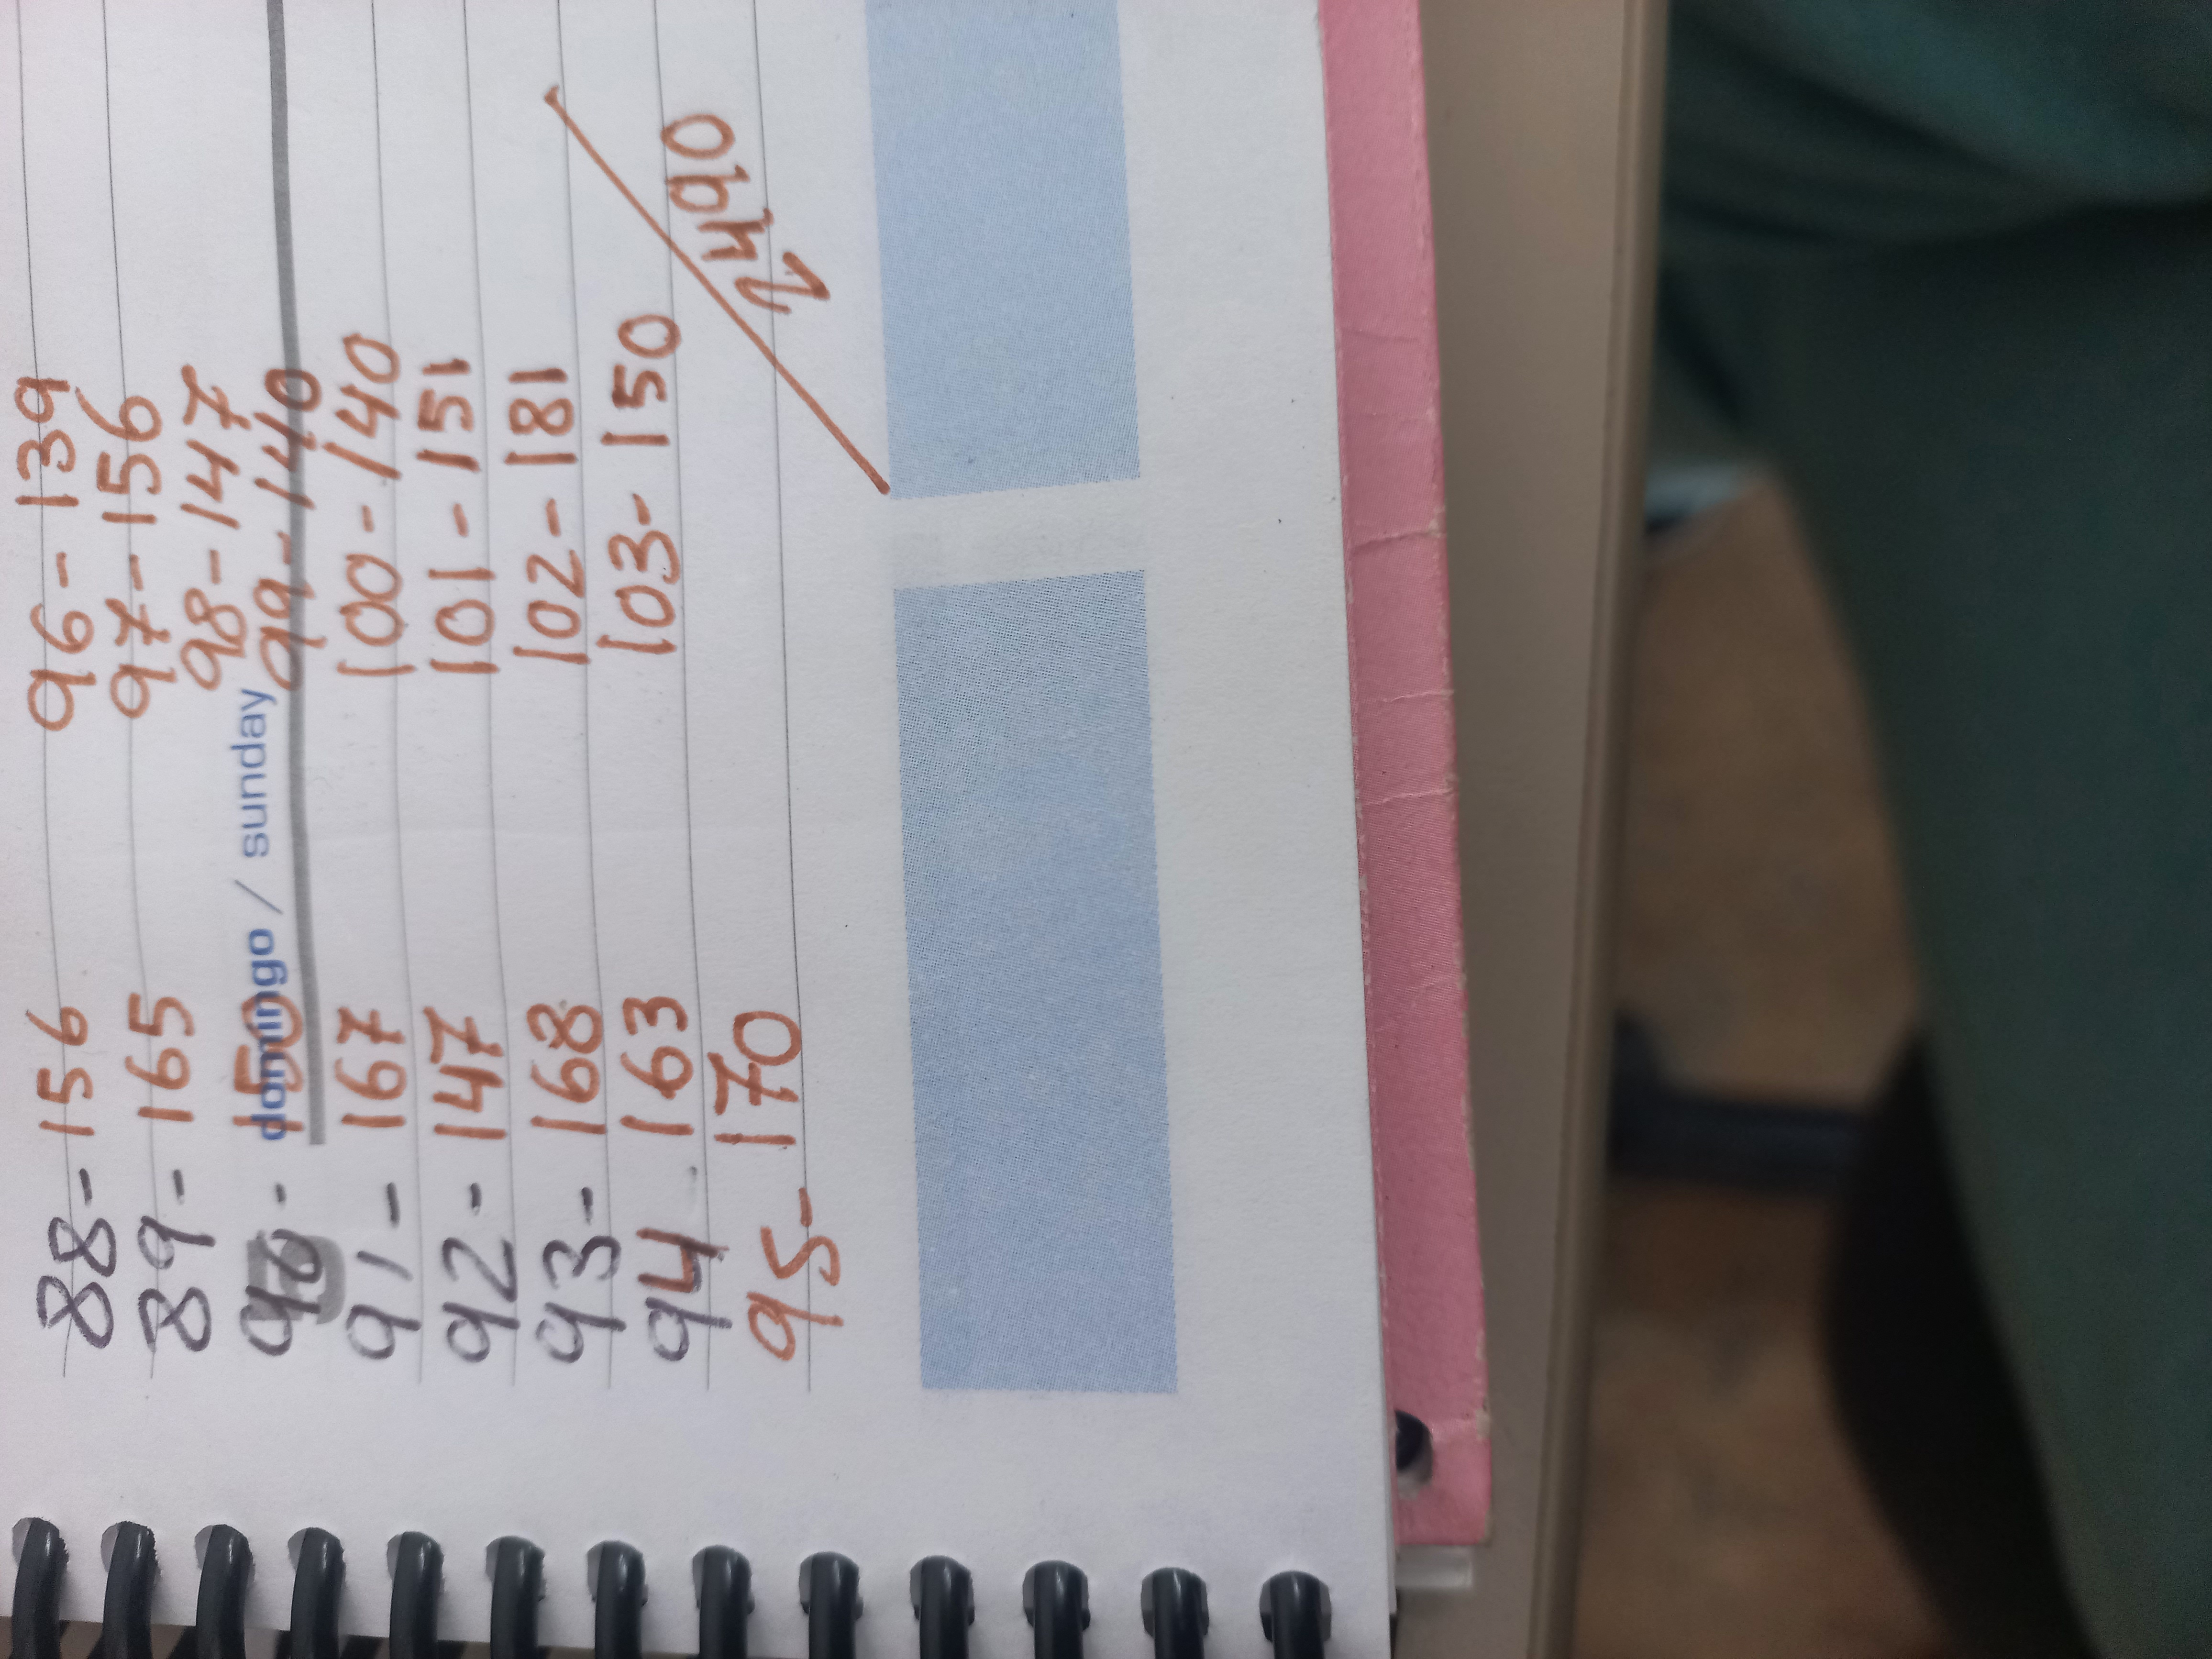 88 - 156
89 - 165
90 - 150
domingo / sunday
91 - 167
92 - 147
93 - 168
94 - 163
95 - 170
96 - 139
97 - 156
98 - 147
99 - 140
100 - 140
101 - 151
102 - 181
103 - 150
2490